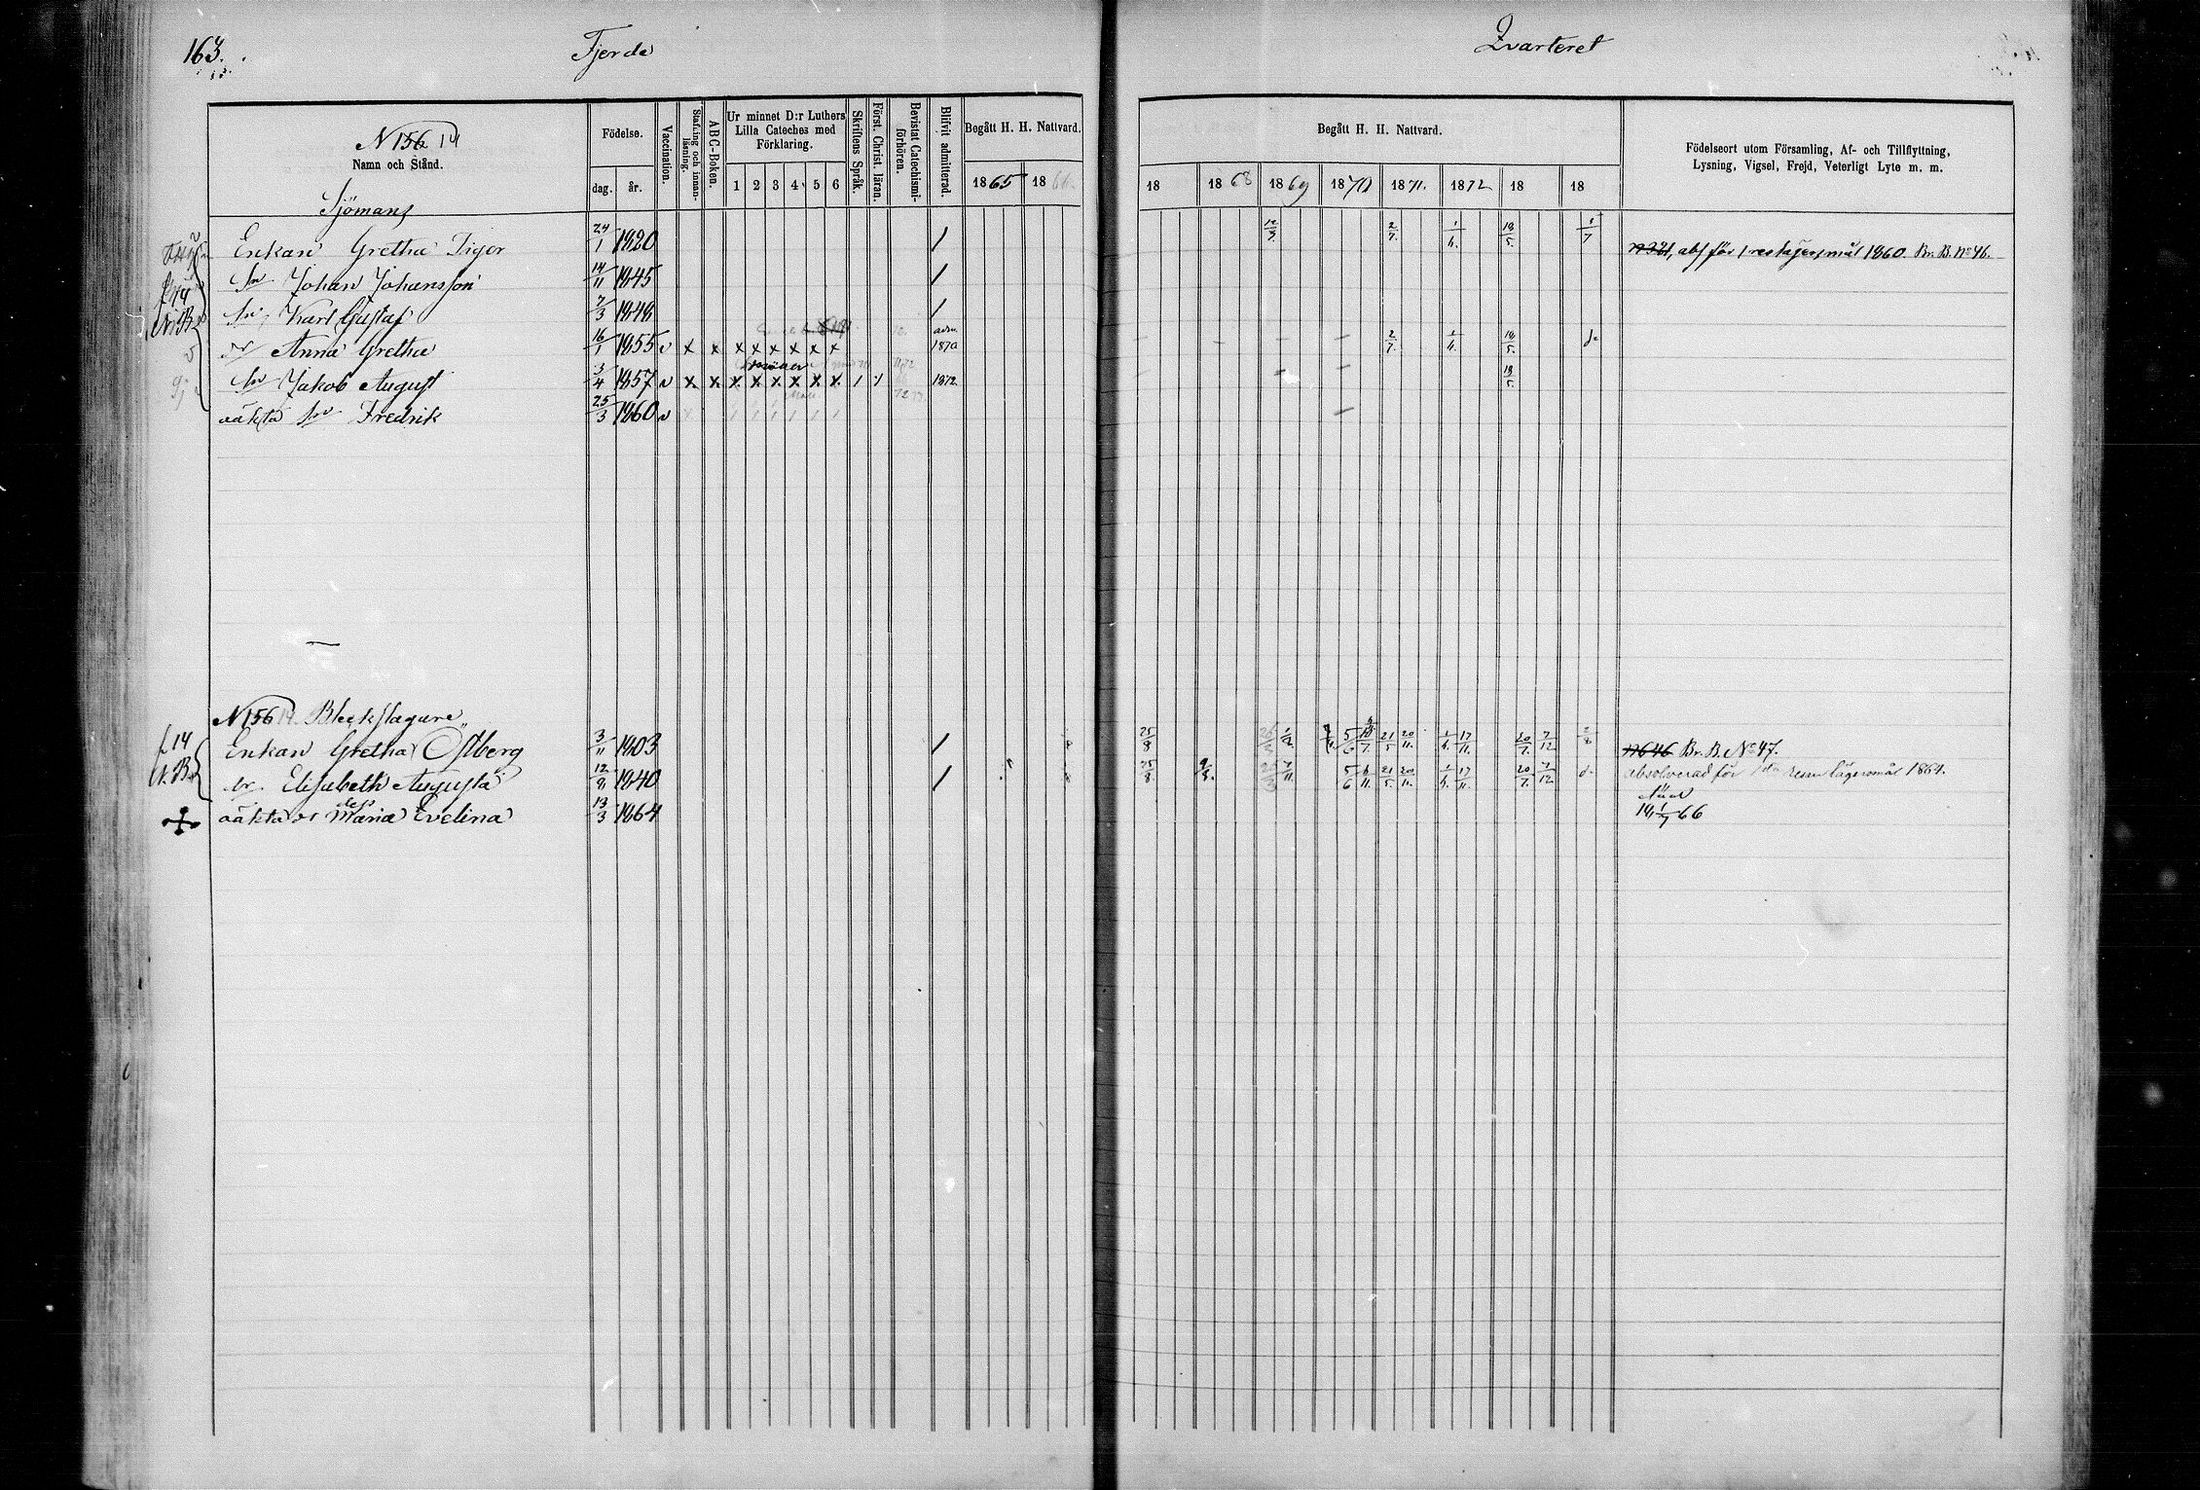 163.
Fjerde
Qvarteret
N 156 14
Namn och Stånd.
Födelse.
dag. år.
Vaccination.
Stafning och innanläsning.
A B C-Boken.
Ur minnet D:r Luthers Lilla Cateches med Förklaring.
1 2 3 4 5 6
Skriftens Språk.
Först. Christ. läran.
Bevistat Catechismi-förhören.
Blifvit admitterad.
Begått H. H. Nattvard.
1865 1866
Begått H. H. Nattvard.
18 1868 1869 1870 1871. 1872 18 18
Födelseort utom Församling, Af- och Tillflyttning,
Lysning, Vigsel, Frejd, Veterligt Lyte m. m.
Sjömans
Enkan Gretha Tiger 24/1 1820 / 12/9. 2/7. 1/4. 18/5. 1/7 abs för lägersmål 1860. Br. B. No 46.
Sn Johan Johansson 14/11 1845 /
Sn Karl Gustaf 7/3 1848 /
dr Anna Gretha 16/1 1855 v x x x x x x x x adm. 1870 2/7. 1/4. 18/5. d:
Sn Jakob August 3/4 1857 v x x x x x x x x / 1872 18/5.
oäkta Sn Fredrik 25/3 1860 v
N 156 14. Bleckslagare
Enkan Gretha Östberg 3/11 1803 / 25/8 5/6 21/5 20/11. 1/4. 17/11. 20/7. 7/12 2/8 Br. B. No 47.
dr Elisabeth Augusta 12/8 1840 / 25/8 5/6 6/11. 21/5. 20/11. 1/4. 17/11. 20/7. 7/12 d: absolverad för lägersmål 1864.
oäkta dr Maria Evelina 13/3 1864 död 18 1/7 66